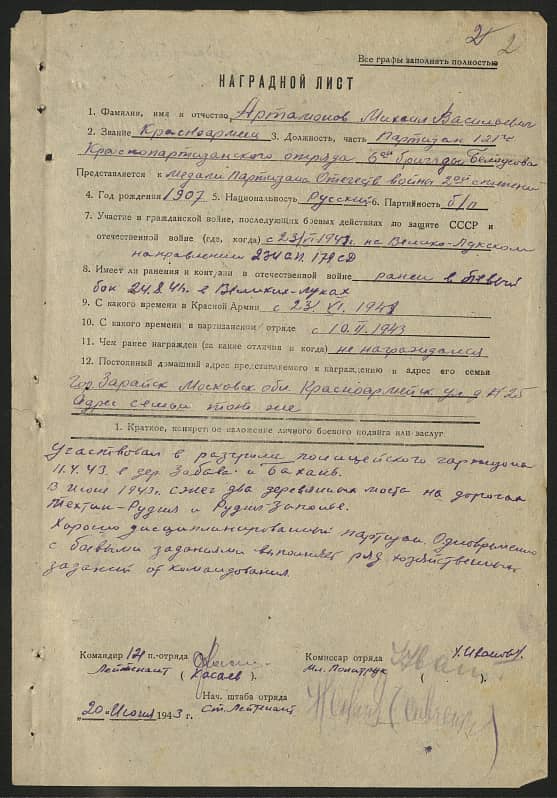 2
Все графы заполнять полностью
НАГРАДНОЙ ЛИСТ
1. Фамилия, имя и отчество Артамонов Михаил Васильевич
2. Звание Красноармеец 3. Должность, часть Партизан 121го
Краснопартизанского отряда 6ой бригады
Представляется к медали Партизана Отечеств войны 2ой степени
4. Год рождения 1907 5. Национальность Русский 6. Партийность б/п
7. Участие в гражданской войне, последующих боевых действиях по защите СССР и
отечественной войне (где, когда) с 23/VI 1941г. на Велико-Лукском
направлении 234 СП. 179 СД
8. Имеет ли ранения и контузии в отечественной войне ранен в левый
бок 24.8.41г. в Великих-Луках
9. С какого времени в Красной Армии с 23. VI. 1941
10. С какого времени в партизанском отряде с 10.II.1943
11. Чем ранее награжден (за какие отличия и когда) не награждался
12. Постоянный домашний адрес представляемого к награждению и адрес его семьи
Гор Зарайск Московск обл. Красноармейск ул д N 25
Адрес семьи тот же
1. Краткое, конкретное изложение личного боевого подвига или заслуг
Участвовал в разгроме полицейского гарнизона
11.4.43. в дер. Забава и
В июне 1943г. сжег два деревянных моста на дорогах
Техтин-Рудня и Рудня-Заполье.
Хорошо дисциплинированный партизан. Одновременно
с боевыми заданиями выполняет ряд хозяйственных
заданий от командования.
Командир 121 п.-отряда
Лейтенант (Касаев)
Комиссар отряда
Мл. Политрук ( ).
Нач. штаба отряда
Ст. Лейтенант
„20" Июня 1943 г.